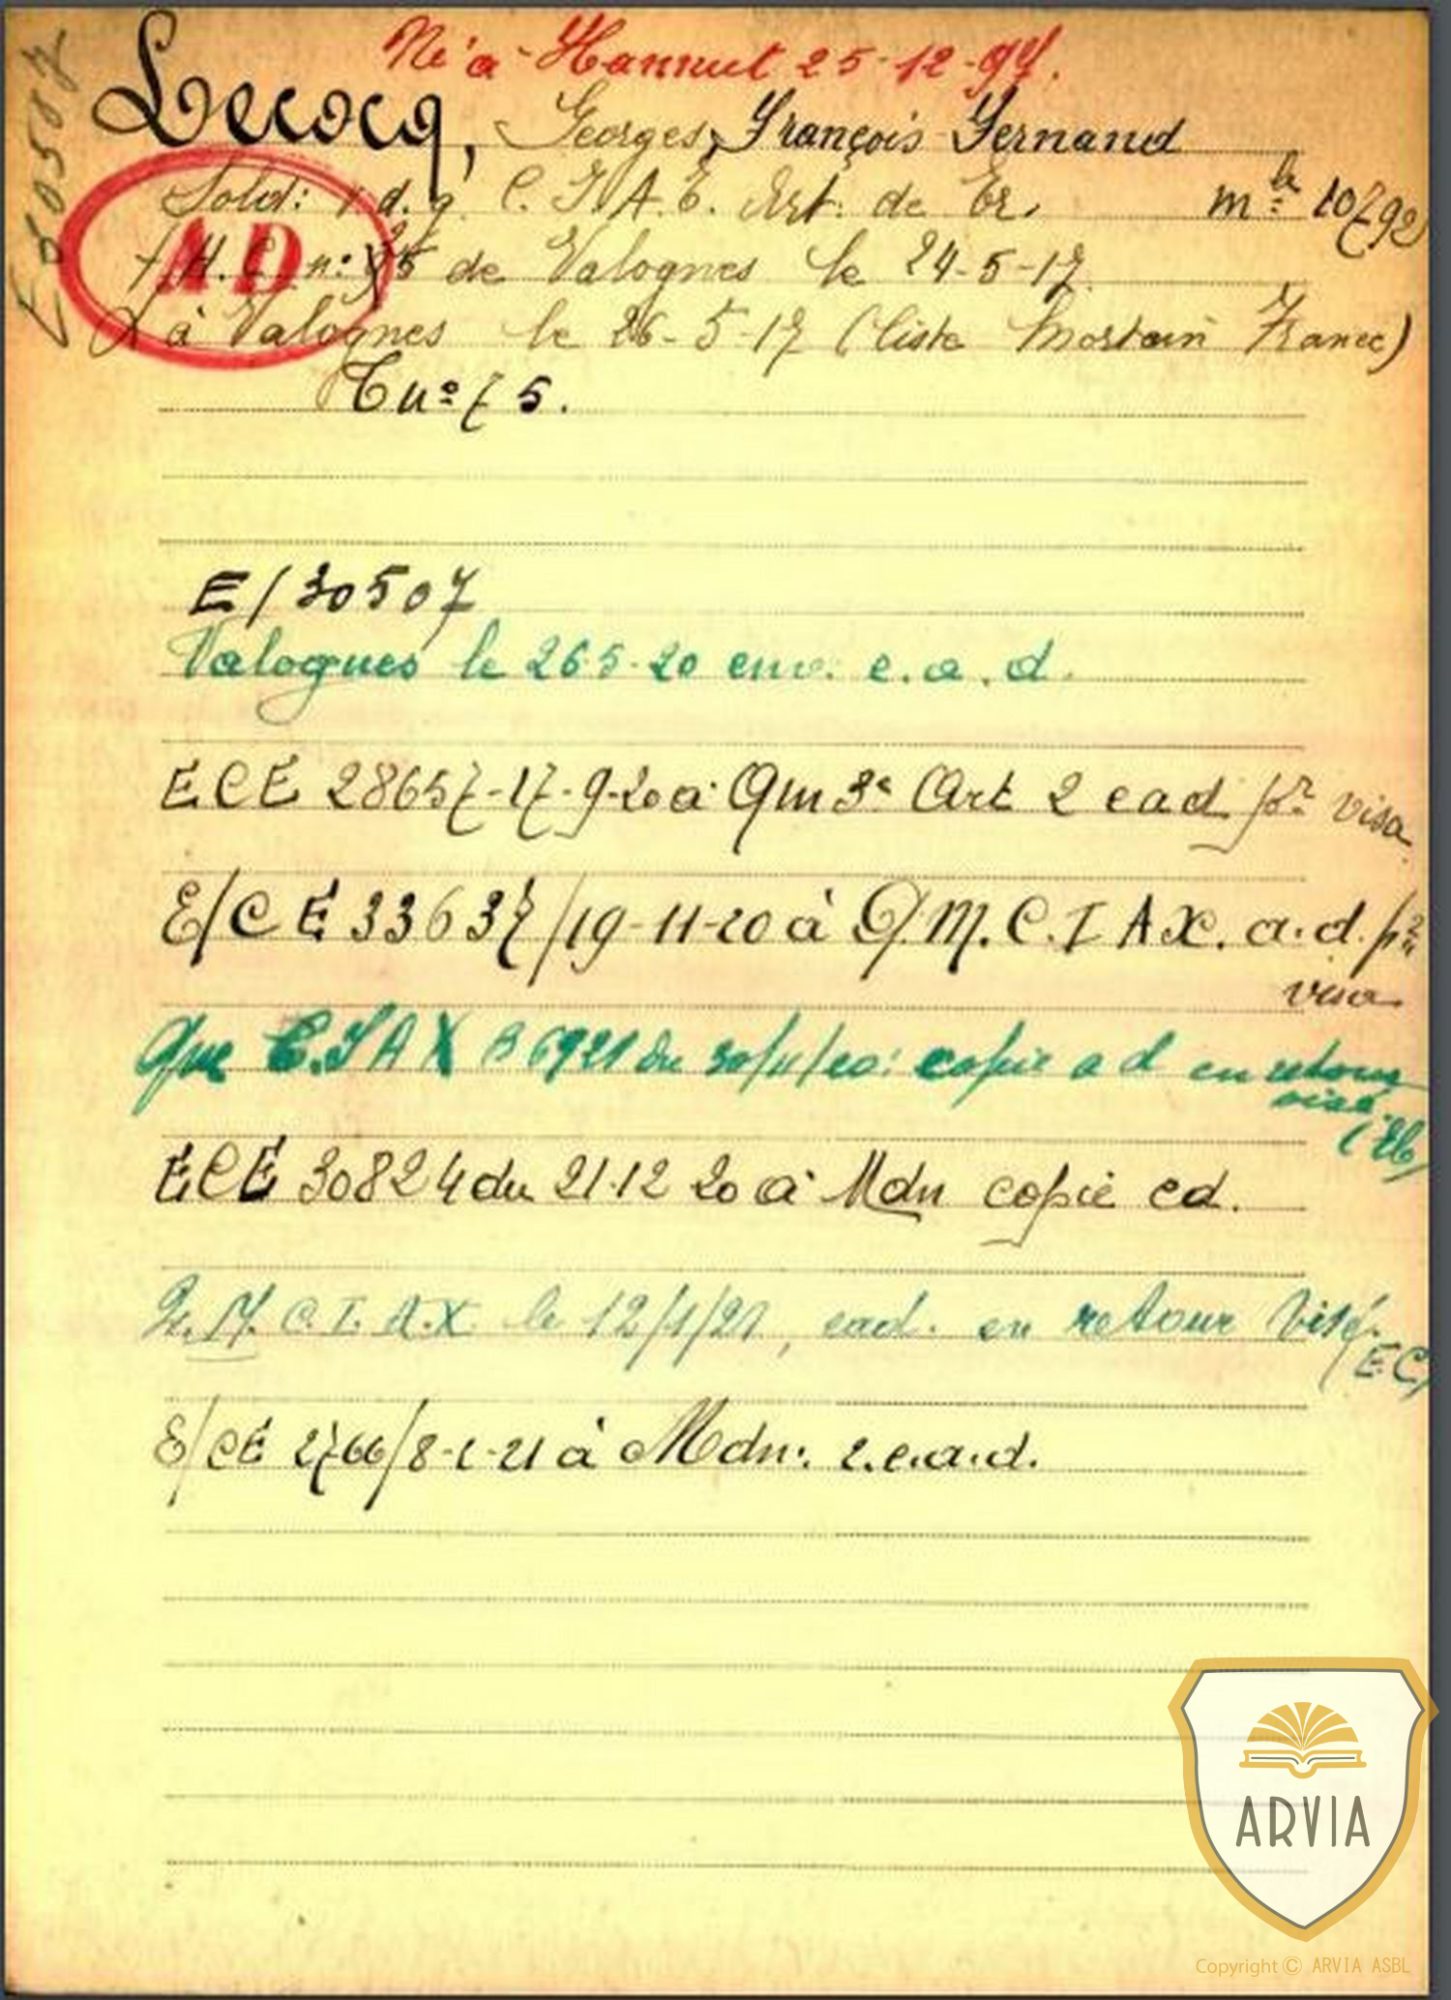 Né à Hannut 25-12-94.
E30507
Lecocq, Georges, François Fernand
Sold: d. g. C. I. A. E. Art. de Er. mle 10792
AD
H. C. n: 75 de Valognes le 24-5-17
à Valognes le 26-5-17 (liste Mortain Franc)
T no 75.
E/30507
Valognes le 26 5-20 env. e.a.d.
ECE 28657-17-9-20 à Qm 3e Art 2 ead pr visa
E/CE 33637/19-11-20 à Q.M.C.I AX. a.d. pr
visa
Qm C.I A X B 6921 du 30/11/20: copie a d en retour
visé.
ECE 30824 du 21-12 20 à Mdn copie ed.
Q.M. C.I. A.X le 12/1/21, ead. en retour visé.
(EC)
E/CE 2766/8-2-21 à Mdn: 2.e.a.d.
ARVIA
Copyright © ARVIA ASBL